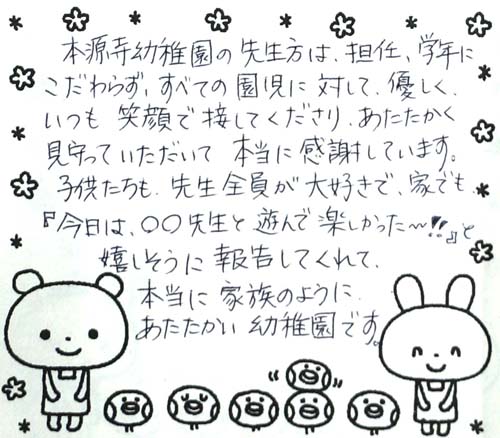 本源寺幼稚園の先生方は、担任、学年に
こだわらず、すべての園児に対して、優しく、
いつも笑顔で接してくださり、あたたかく
見守っていただいて本当に感謝しています。
子供たちも、先生全員が大好きで、家でも、
『今日は、○○先生と遊んで楽しかった〜!!』と
嬉しそうに報告してくれて、
本当に家族のように
あたたかい幼稚園です。